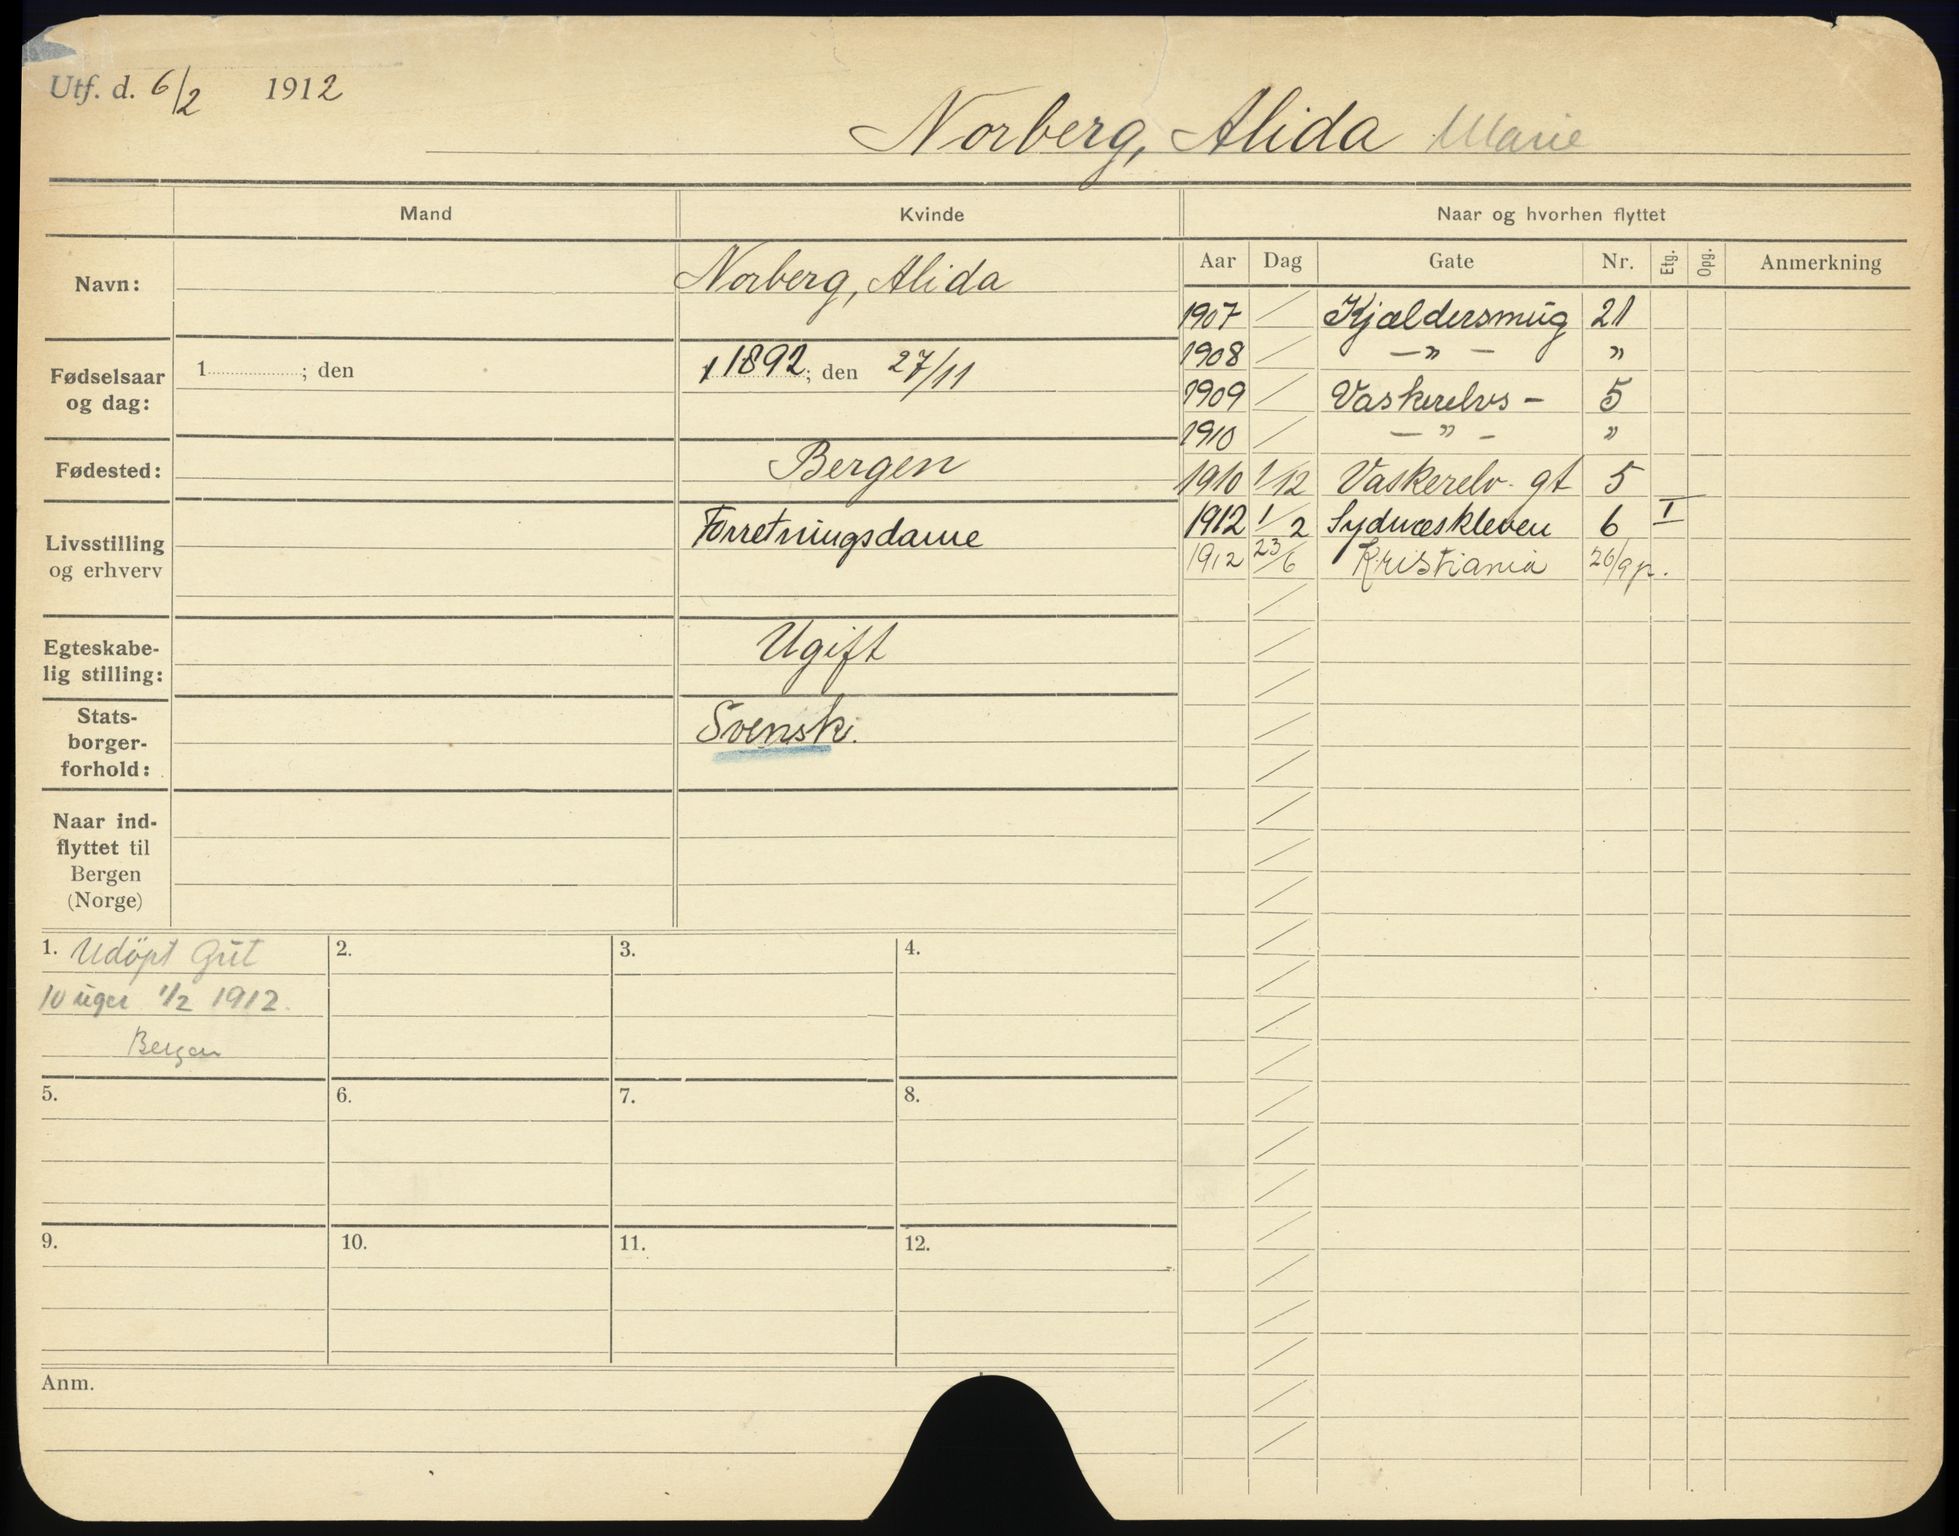 Utf. d. 6/2 1912
Norberg, Alida Marie
Mand
Kvinde
Naar og hvorhen flyttet
Aar Dag Gate Nr. Etg. Opg. Anmerkning
Navn:
Norberg, Alida
Fødselsaar
og dag:
1 ; den
1892; den 27/11
Fødested:
Bergen
Livsstilling
og erhverv
Forretningsdame
Egteskabe-
lig stilling:
Ugift
Stats-
borger-
forhold:
Svensk.
Naar ind-
flyttet til
Bergen
(Norge)
1907 Kjældersmug 21
1908 — " — "
1909 Vaskerelvs - 5
1910 — " — "
1910 1/12 Vaskerelv. gt 5
1912 1/2 Sydnæskleven 6 I
1912 23/6 Kristiania 26/9 p.
1. Udöpt Gut
10 uger 1/2 1912.
Bergen
2.
3.
4.
5.
6.
7.
8.
9.
10.
11.
12.
Anm.